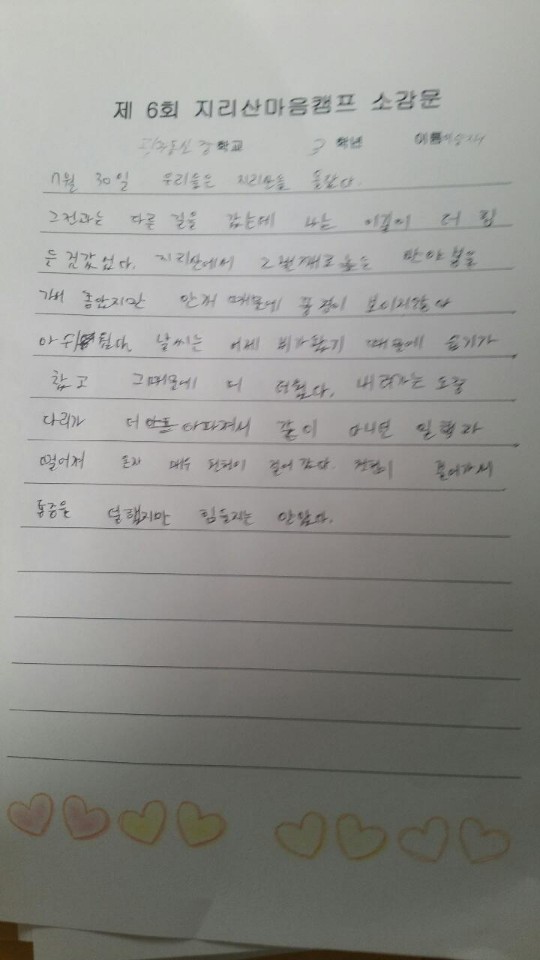 제 6회 지리산마음캠프 소감문
중학교 3 학년 이름
7월 30일 우리들은 지리산을 올랐다.
그전과는 다른 길을 갔는데 나는 이길이 더 힘
든것같았다. 지리산에서 2번째로 높은 반야봉을
가서 좋았지만 안개 때문에 풍경이 보이지않아
아쉬웠다. 날씨는 어제 비가왔기 때문에 습기가
찼고 그때문에 더 더웠다. 내려가는 도중
다리가 더 아파져서 같이 아니면 일행과
떨어져 혼자 매우 천천히 걸어 갔다. 천천히 걸어가서
통증은 덜했지만 힘들지는 안았다.